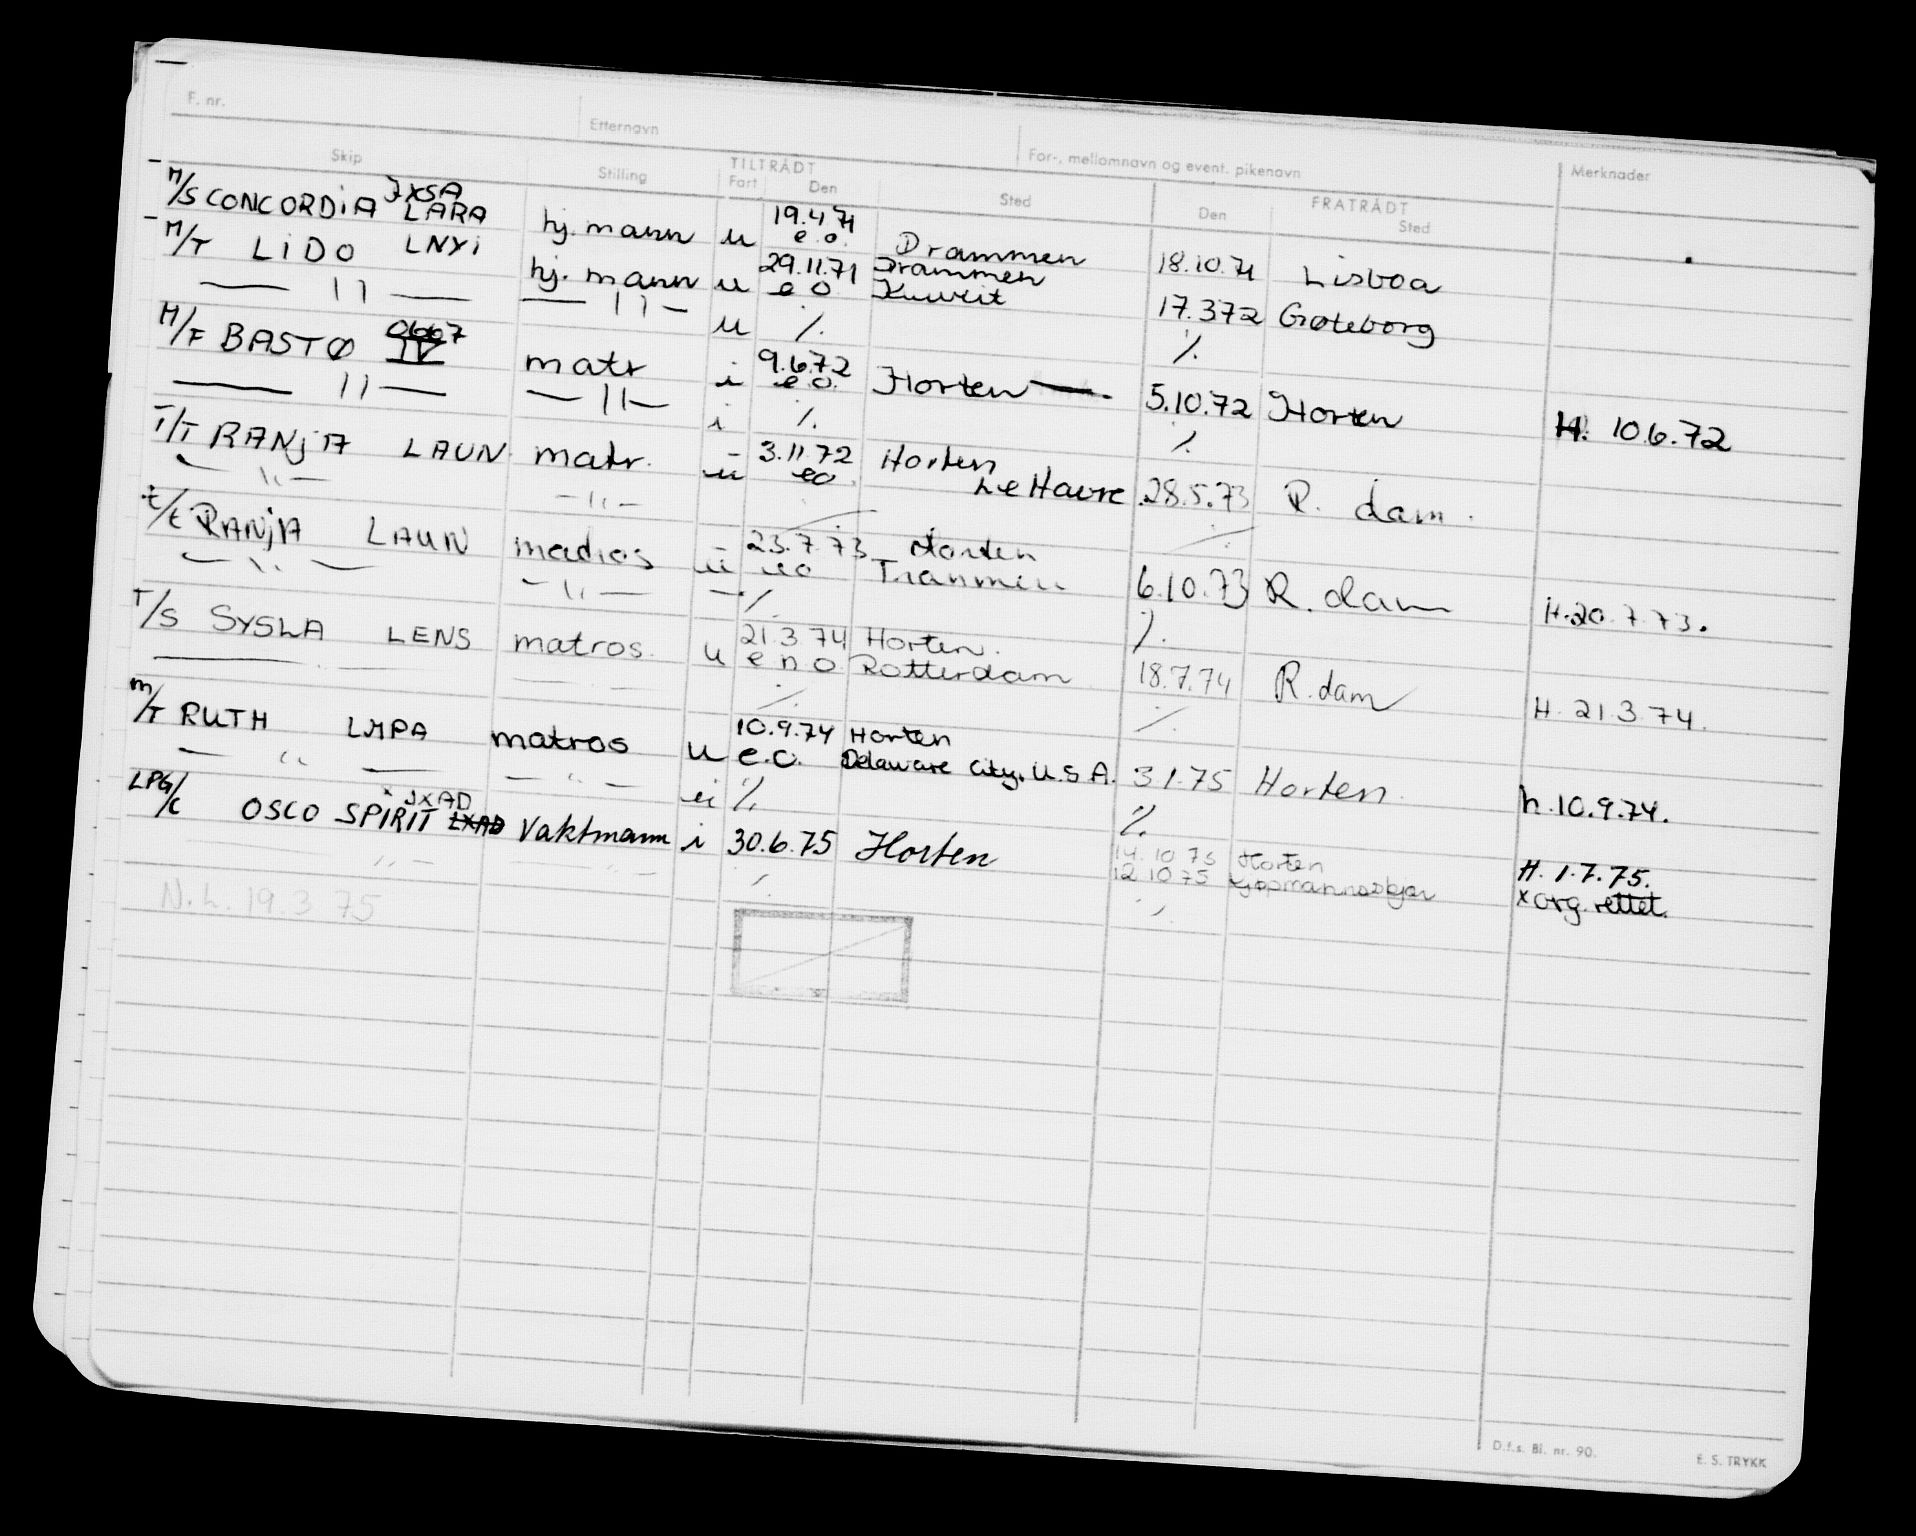 F. nr. Etternavn For-, mellomnavn og event. pikenavn
Skip Stilling TILTRÅDT FRATRÅDT Merknader
Fart Den Sted Den Sted
JXSA
M/S CONCORDIA LARA hj. mann u 19.4.71 e.o. Drammen 18.10.71 Lisboa
M/T LIDO LNYI hj. mann u 29.11.71 e o Drammen Kuweit 17.372 Gøteborg
— 11 — — 11 — u ٪ ٪
M/F BASTØ IV matr i 9.6.72 e.o. Horten — 5.10.72 Horten H. 10.6.72
— 11 — — 11 — i ٪ ٪
T/T RANJA LAUN matr. u 3.11.72 eo Horten Le Havre 28.5.73 R. dam.
— 11 — — 11 —
t/t RANJA LAUN u 23.7.73 Horten 6.10.73 R. dam H. 20.7.73.
— 11 — — 11 — — ٪ ٪
T/S SYSLA LENS matros u 21.3.74 e n o Horten. Rotterdam 18.7.74 R. dam H. 21.3.74.
m/T RUTH LMPA matros u 10.9.74 e.o. Horten Delaware City. U.S.A. 3.1.75 Horten h. 10.9.74.
— " — — " — ٪ ٪
JXAD
LPG/C OSCO SPIRIT LXAD Vaktmann i 30.6.75 Horten 14.10.75 Horten H. 1.7.75.
— " — — " — ٪ 12.10.75 x org. rettet.
N.L. 19.3.75
D.f.s. Bl. nr. 90. E. S. TRYKK